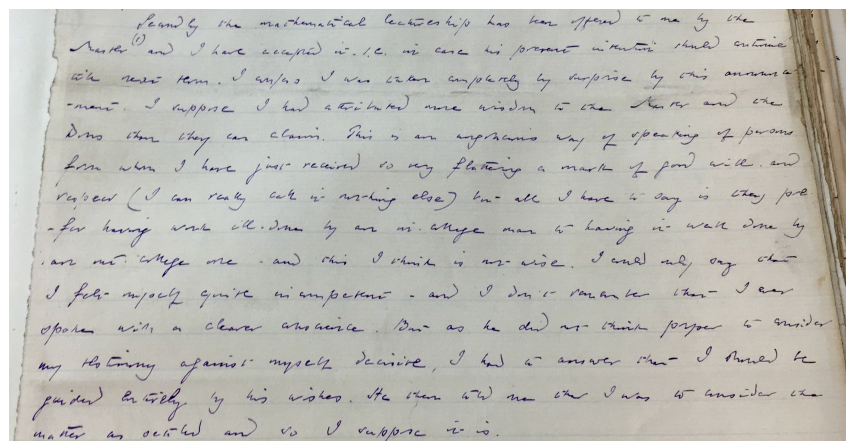 Secondly the mathematical lectureship has been offered to me by the
Master (1) and I have accepted it. i.e. in case his present intention should continue
till next term. I confess I was taken completely by surprise by this announce
-ment. I suppose I had attributed more wisdom to the Master and the
Dons than they can claim. This is an ungracious way of speaking of persons
from whom I have just received so very flattering a mark of good will and
respect (I can really call it nothing else) but all I have to say is they pre
-fer having work ill-done by an in-college man to having it well done by
an out college one - and this I think is not wise. I could only say that
I felt myself quite incompetent - and I don't remember that I ever
spoke with a clearer conscience. But as he did not think proper to consider
my testimony against myself decisive, I had to answer that I should be
guided entirely by his wishes. He then told me that I was to consider the
matter as settled and so I suppose it is.